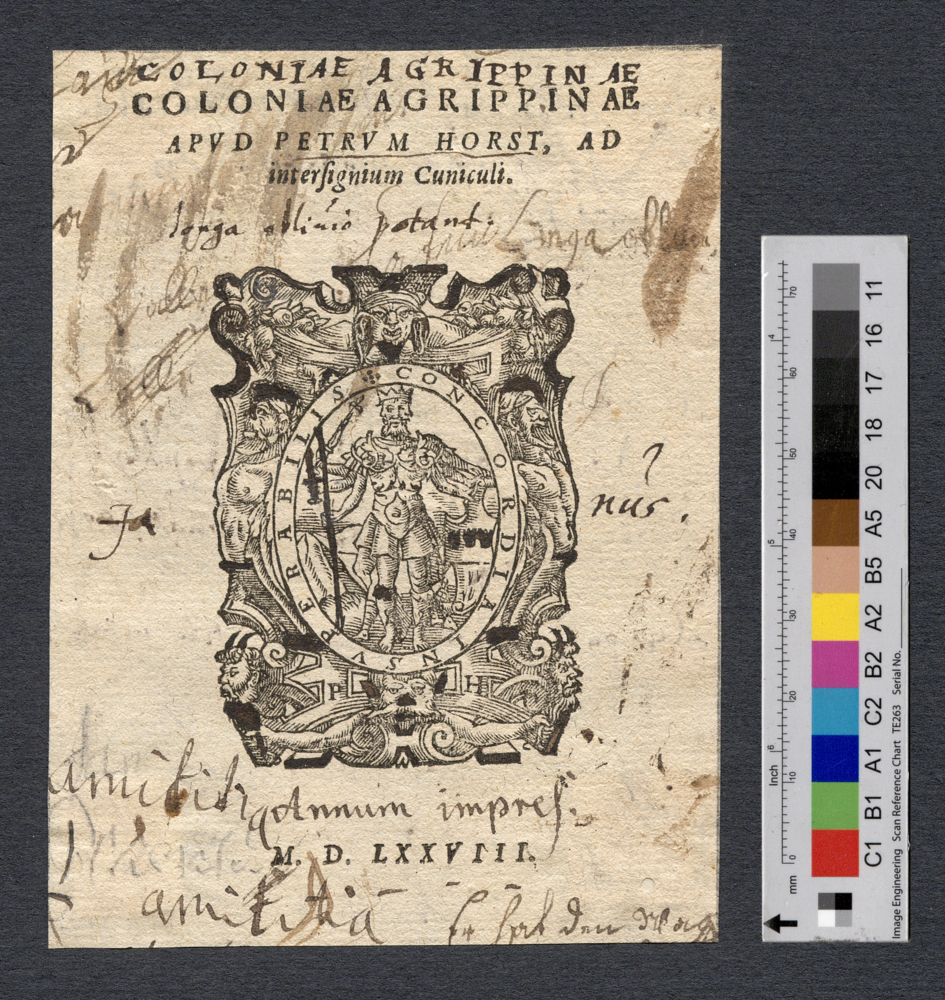 COLONIAE AGRIPPINAE
COLONIAE AGRIPPINAE
APVD PETRVM HORST, AD
interſignium Cuniculi.
longa obliuio potant.
longa
CONCORDIA INSVPERABILIS
Ja nus.
P H
amititi
Annum impreſ.
M. D. LXXVIII.
amititia
Er hat den
mm 0 10 20 30 40 50 60 70
Inch 4 5 6
11
16
17
18
20
A5
B5
A2
B2
C2
A1
B1
C1
Image Engineering Scan Reference Chart TE263 Serial No.